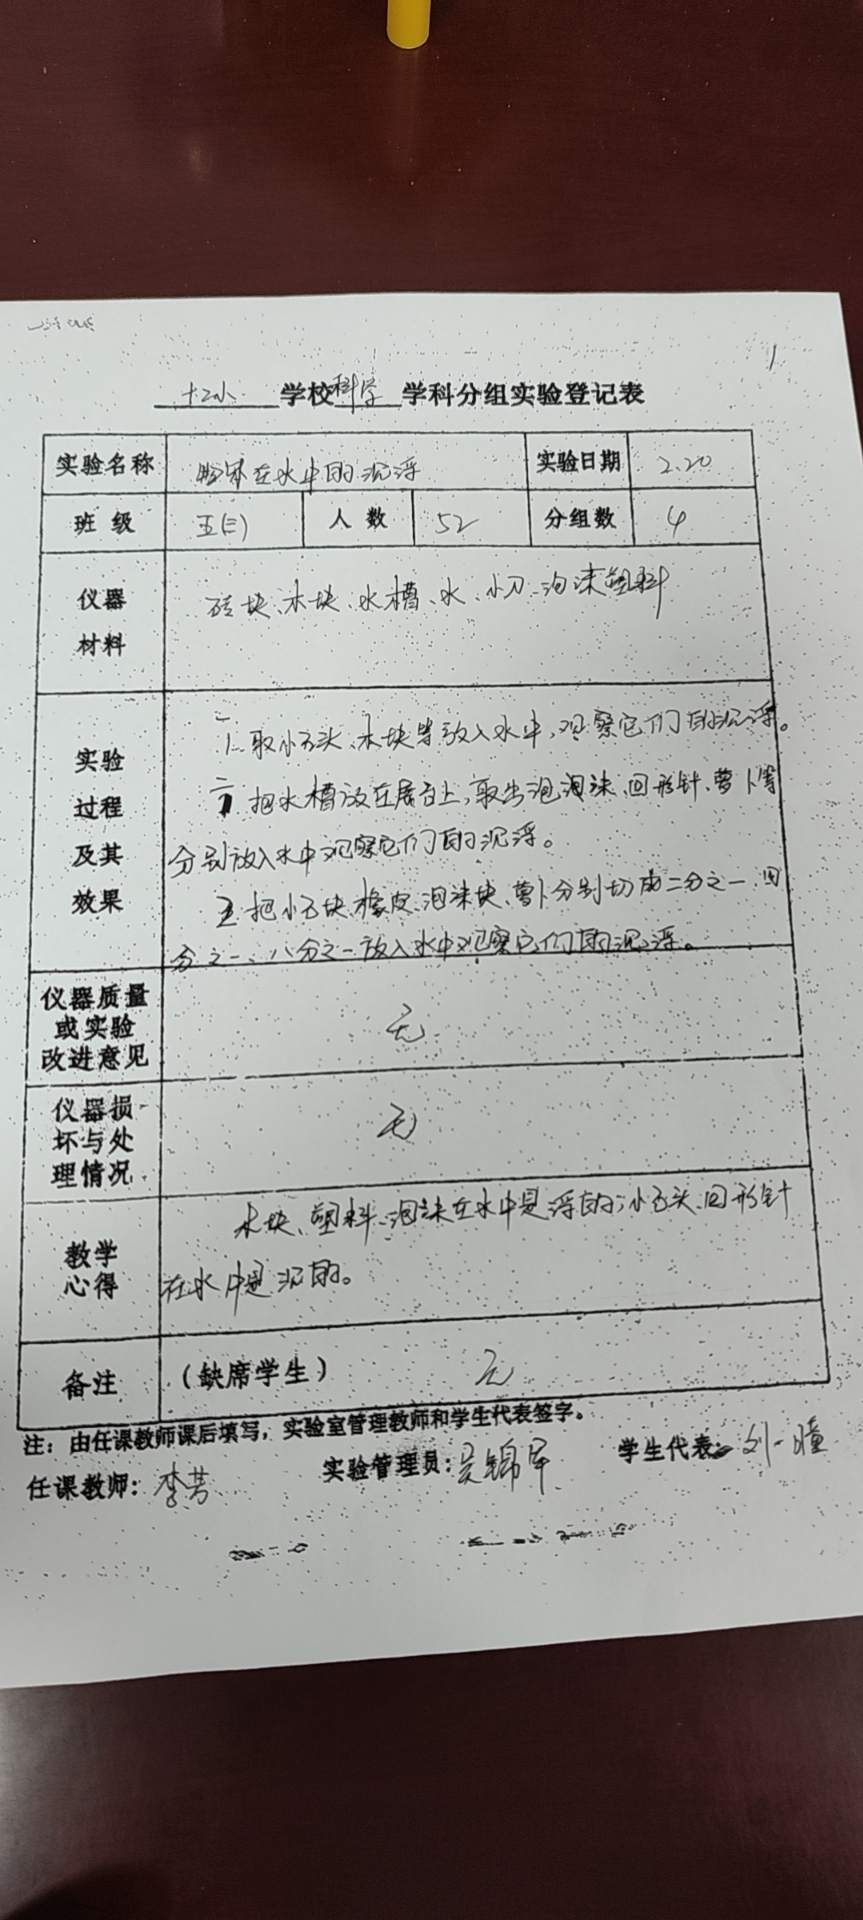 十二小 学校 科学 学科分组实验登记表
实验名称 物体在水中的沉浮 实验日期 2.20
班级 五(三) 人数 52 分组数 4
仪器材料 砖块、木块、水槽、水、小刀、泡沫塑料
实验过程及其效果
一、取小石头、木块等放入水中,观察它们的沉浮。
二、把水槽放在展台上,取出泡泡沫、回形针、萝卜等
分别放入水中观察它们的沉浮。
三、把小石块、橡皮、泡沫块、萝卜分别切成二分之一、四
分之一、八分之一放入水中观察它们的沉浮。
仪器质量或实验改进意见 无
仪器损坏与处理情况 无
教学心得 木块、塑料、泡沫在水中是浮的;小石头、回形针
在水中是沉的。
备注 (缺席学生) 无
注:由任课教师课后填写,实验室管理教师和学生代表签字。
任课教师:李芳 实验管理员:吴锦军 学生代表:刘一瞳